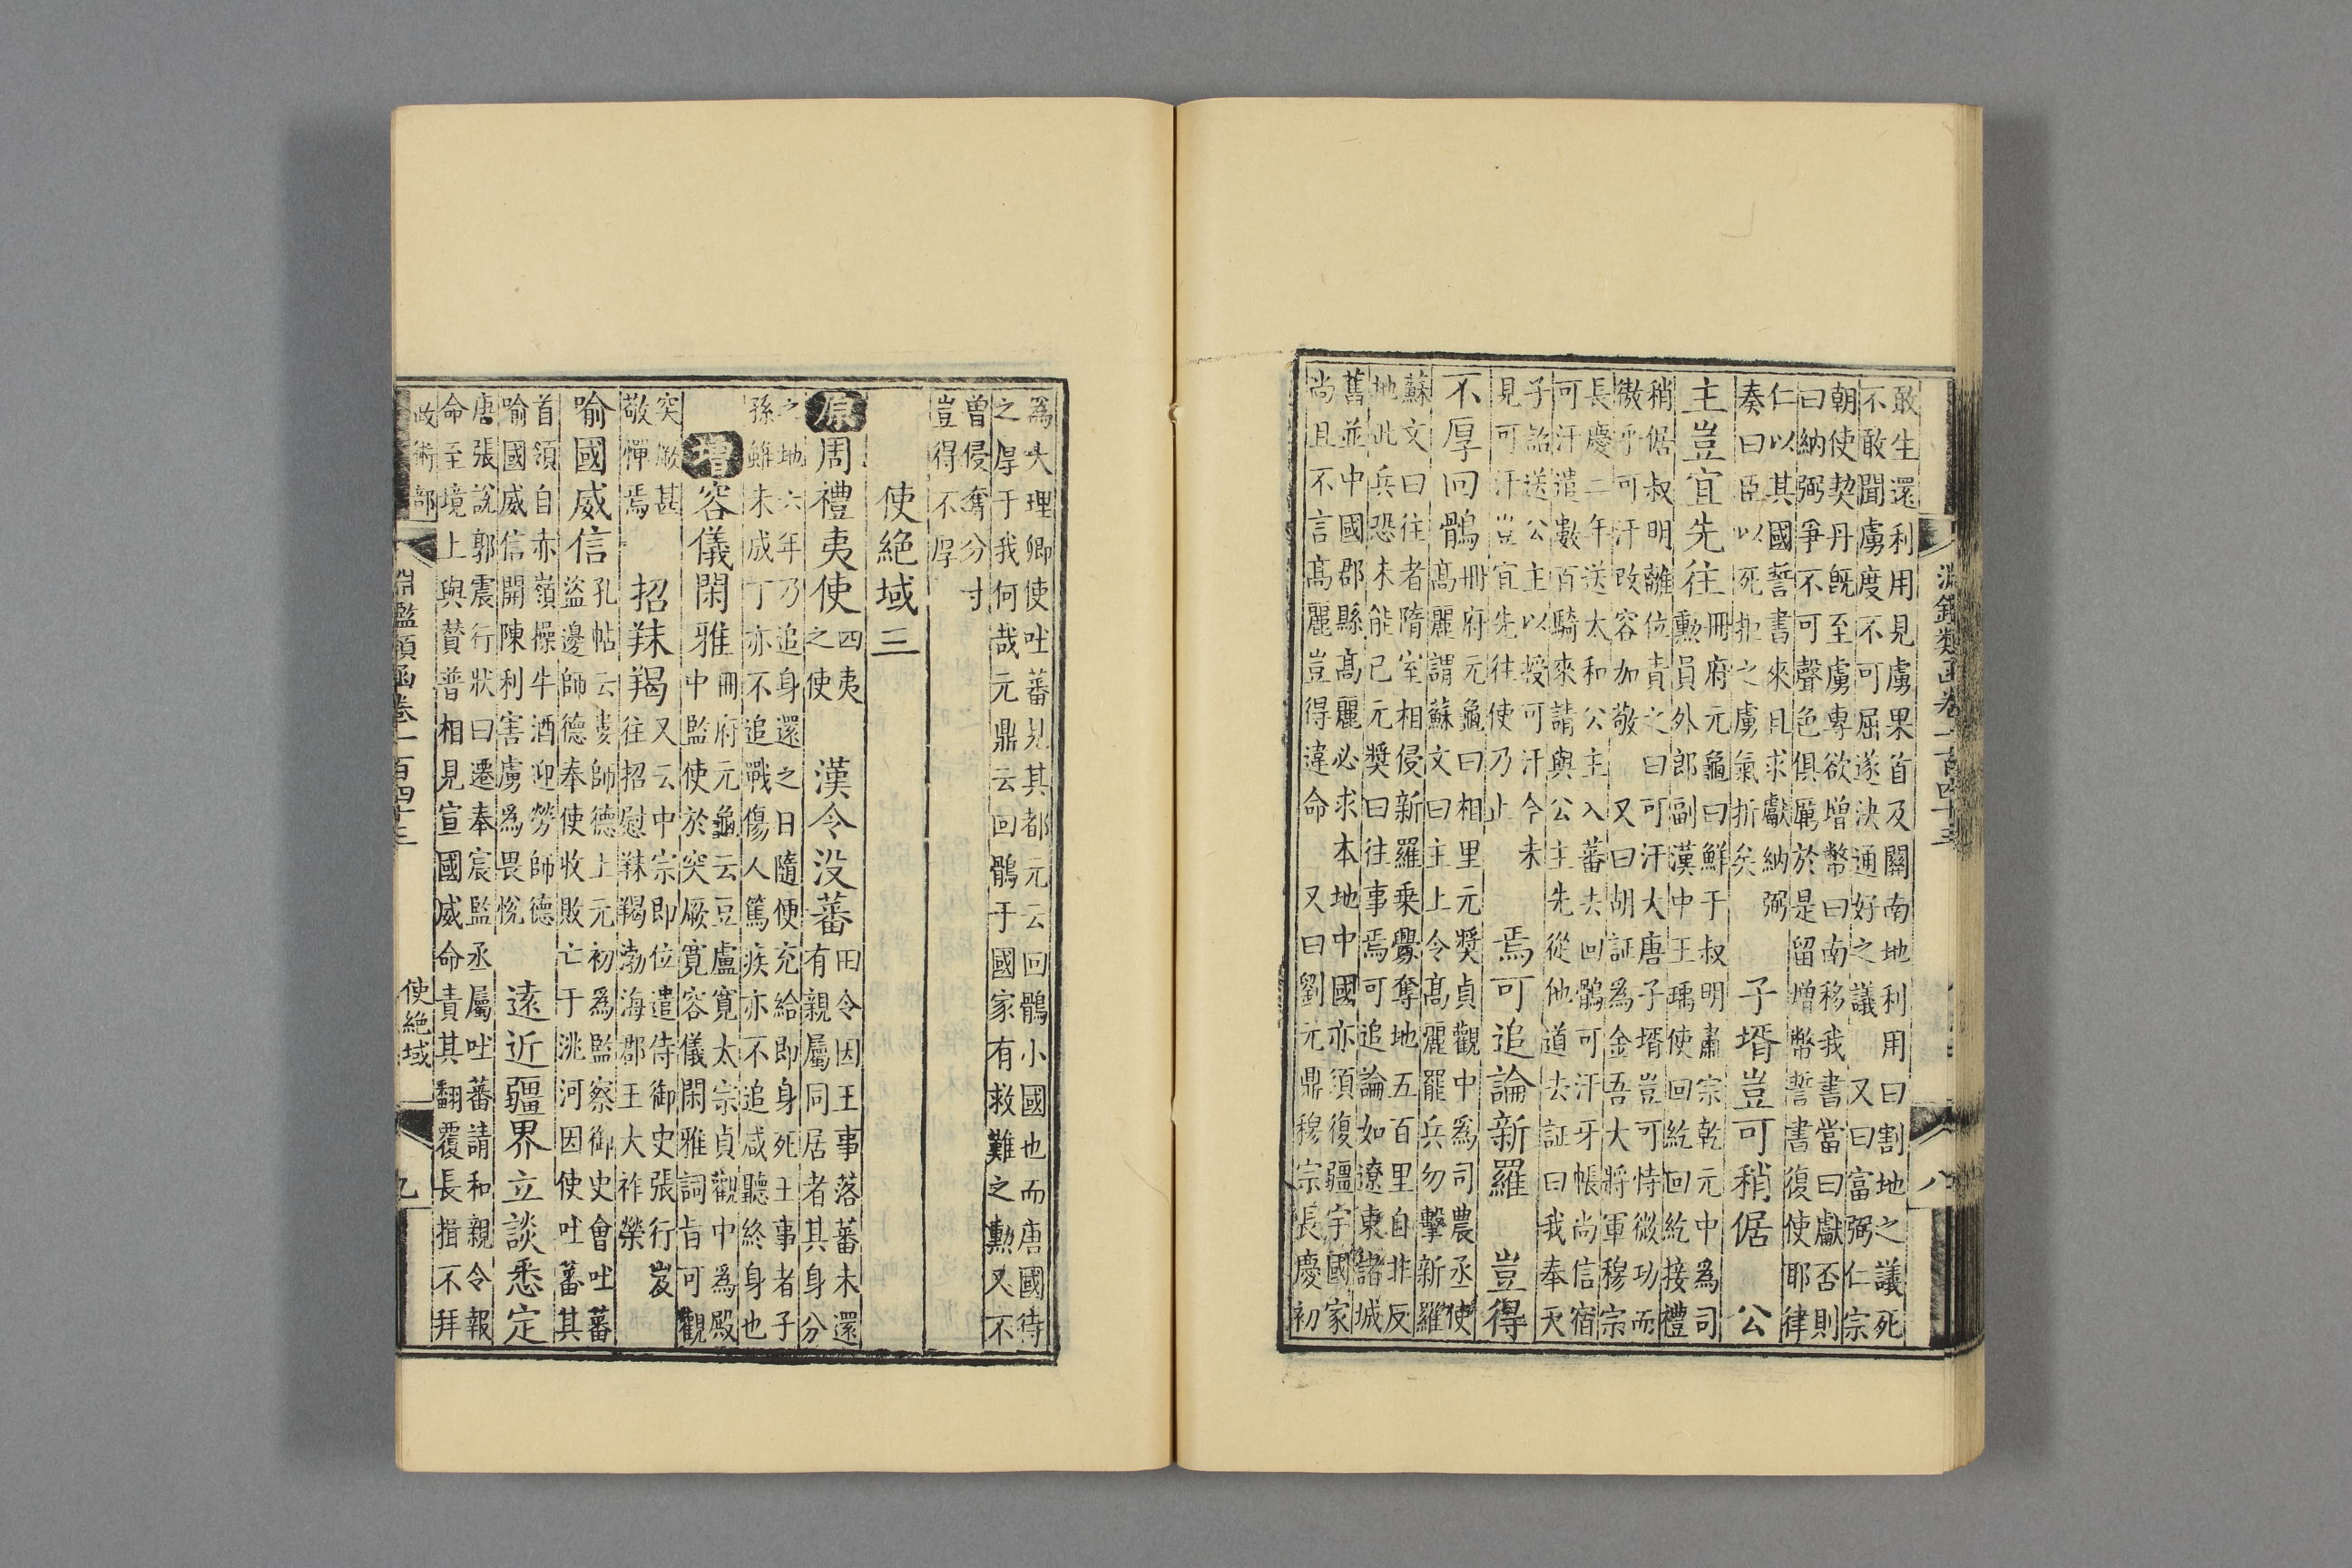 淵鑑類函卷一百四十三
八
敢生還利用見虜果首及關南地利用曰割地之議死
不敢聞虜度不可屈遂決通好之議 又曰富弼仁宗
朝使契丹既至虜專欲增幣曰南移我書當曰獻否則
曰納弼爭不可聲色俱厲於是留增幣誓書復使耶律
仁以其國誓書來且求獻納弼
奏曰臣以死拒之虜氣折矣
子壻豈可稍倨 公
主豈宜先往
冊府元龜曰鮮于叔明肅宗乾元中爲司
勳員外郎副漢中王瑀使回紇回紇接禮
稍倨叔明離位責之曰可汗大唐子壻豈可恃微功而
傲乎可汗改容加敬 又曰胡証爲金吾大將軍穆宗
長慶二年送太和公主入蕃去回鶻可汗牙帳尚信宿
可汗遣數百騎來請與公主先從他道去証曰我奉天
子詔送公主以授可汗今未
見可汗豈宜先往使乃止
焉可追論新羅 豈得
不厚回鶻
冊府元龜曰相里元奬貞觀中爲司農丞使
高麗謂蘇文曰主上令高麗罷兵勿擊新羅
蘇文曰往者隋室相侵新羅乗釁奪地五百里自非反
地此兵恐未能已元奬曰往事焉可追論如遼東諸城
舊並中國郡縣高麗必求本地中國亦須復疆宇國家
尚且不言高麗豈得違命 又曰劉元鼎穆宗長慶初
爲大理卿使吐蕃見其都元云回鶻小國也而唐國待
之厚于我何哉元鼎云回鶻于國家有救難之勲又不
曽侵奪分寸
豈得不厚
使絶域三
原周禮夷使
四夷
之使
漢令没蕃
田令因王事落蕃未還
有親屬同居者其身分
之地六年乃追身還之日隨便充給即身死王事者子
孫雖未成丁亦不追戰傷人篤疾亦不追咸聽終身也
增容儀閑雅
冊府元龜云豆盧寛太宗貞觀中爲殿
中監使於突厥寛容儀閑雅詞旨可觀
突厥甚
敬憚焉
招靺羯
又云中宗即位遣侍御史張行岌
往招慰靺羯渤海郡王大祚榮
喻國威信
孔帖云婁師德上元初爲監察御史會吐蕃
盜邊師德奉使收敗亡于洮河因使吐蕃其
首領自赤嶺操牛酒迎勞師德
喻國威信開陳利害虜爲畏悅
遠近疆界立談悉定
唐張說郭震行狀曰遷奉宸監丞屬吐蕃請和親令報
命至境上與贊普相見宣國威命責其翻覆長揖不拜
政術部
淵鑑類函卷一百四十三
使絶域
九